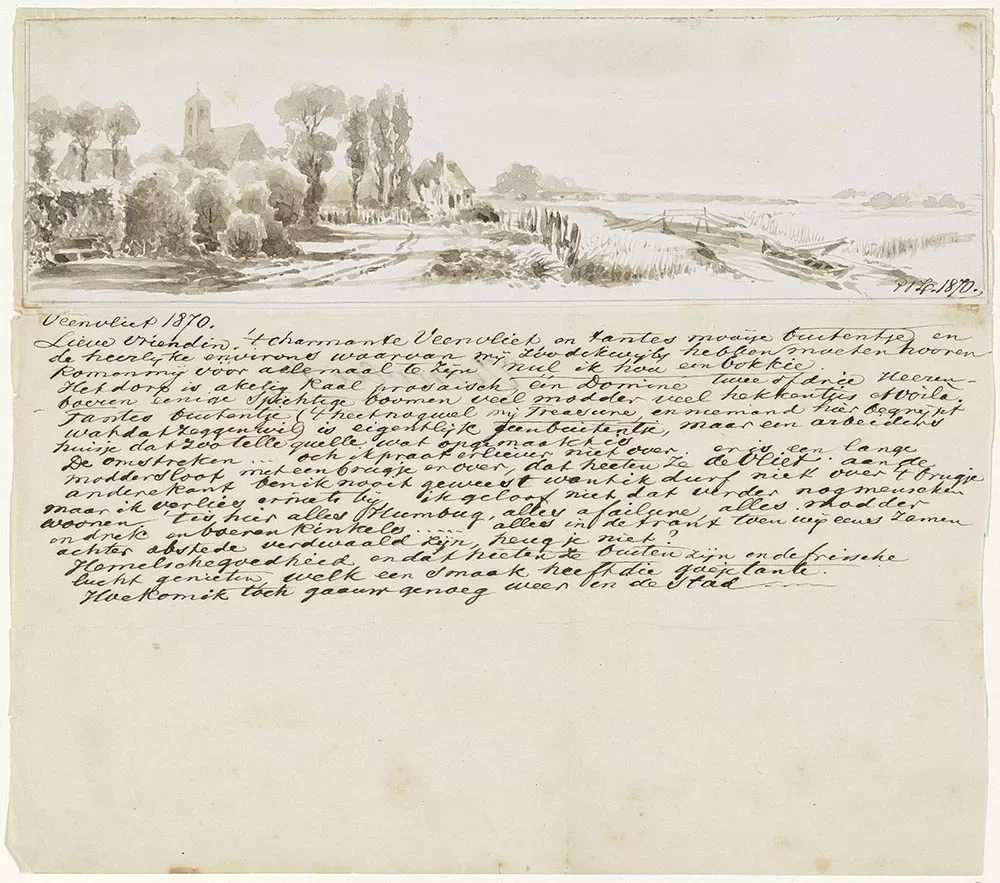 P V L. 1870.
Veenvliet 1870.
Lieve Vriendin. 't charmante Veenvliet en tantes mooije buitentje, en
de heerlijke environs waarvan wij zoo dikwijls hebben moeten hooren
komen mij voor allemaal te zijn nul ik hou een bokkie.
Het dorp is akelig kaal prosaisch één Domine twee of drie Heeren-
boeren eenige spichtige boomen veel modder veel hekkentjes et voila.
Tantes buitentje ('t heet nog wel mij Treasure, en niemand hier begrijpt
wat dat zeggen wil) is eigentlijk geen buitentje, maar een arbeiders
huisje dat zoo telle quelle wat opgemaakt is
De omstreken ... och ik praat er liever niet over. er is een lange
moddersloot met een brugje er over, dat heeten ze de Vliet. aan de
anderekant ben ik nooit geweest want ik durf niet over 't brugje
maar ik verlies er niets bij ik geloof niet dat verder nog menschen
woonen 't is hier alles Humbug, alles a failure, alles modder
en drek en boeren kinkels .... alles in de trant toen wij eens zamen
achter abstede verdwaald zijn, heug je niet?
Hemelsche goedheid, en dat heeten ze buiten zijn en de frissche
lucht genieten, welk een smaak heeft die goeje tante.
Hoe kom ik toch gaauw genoeg weer in de stad